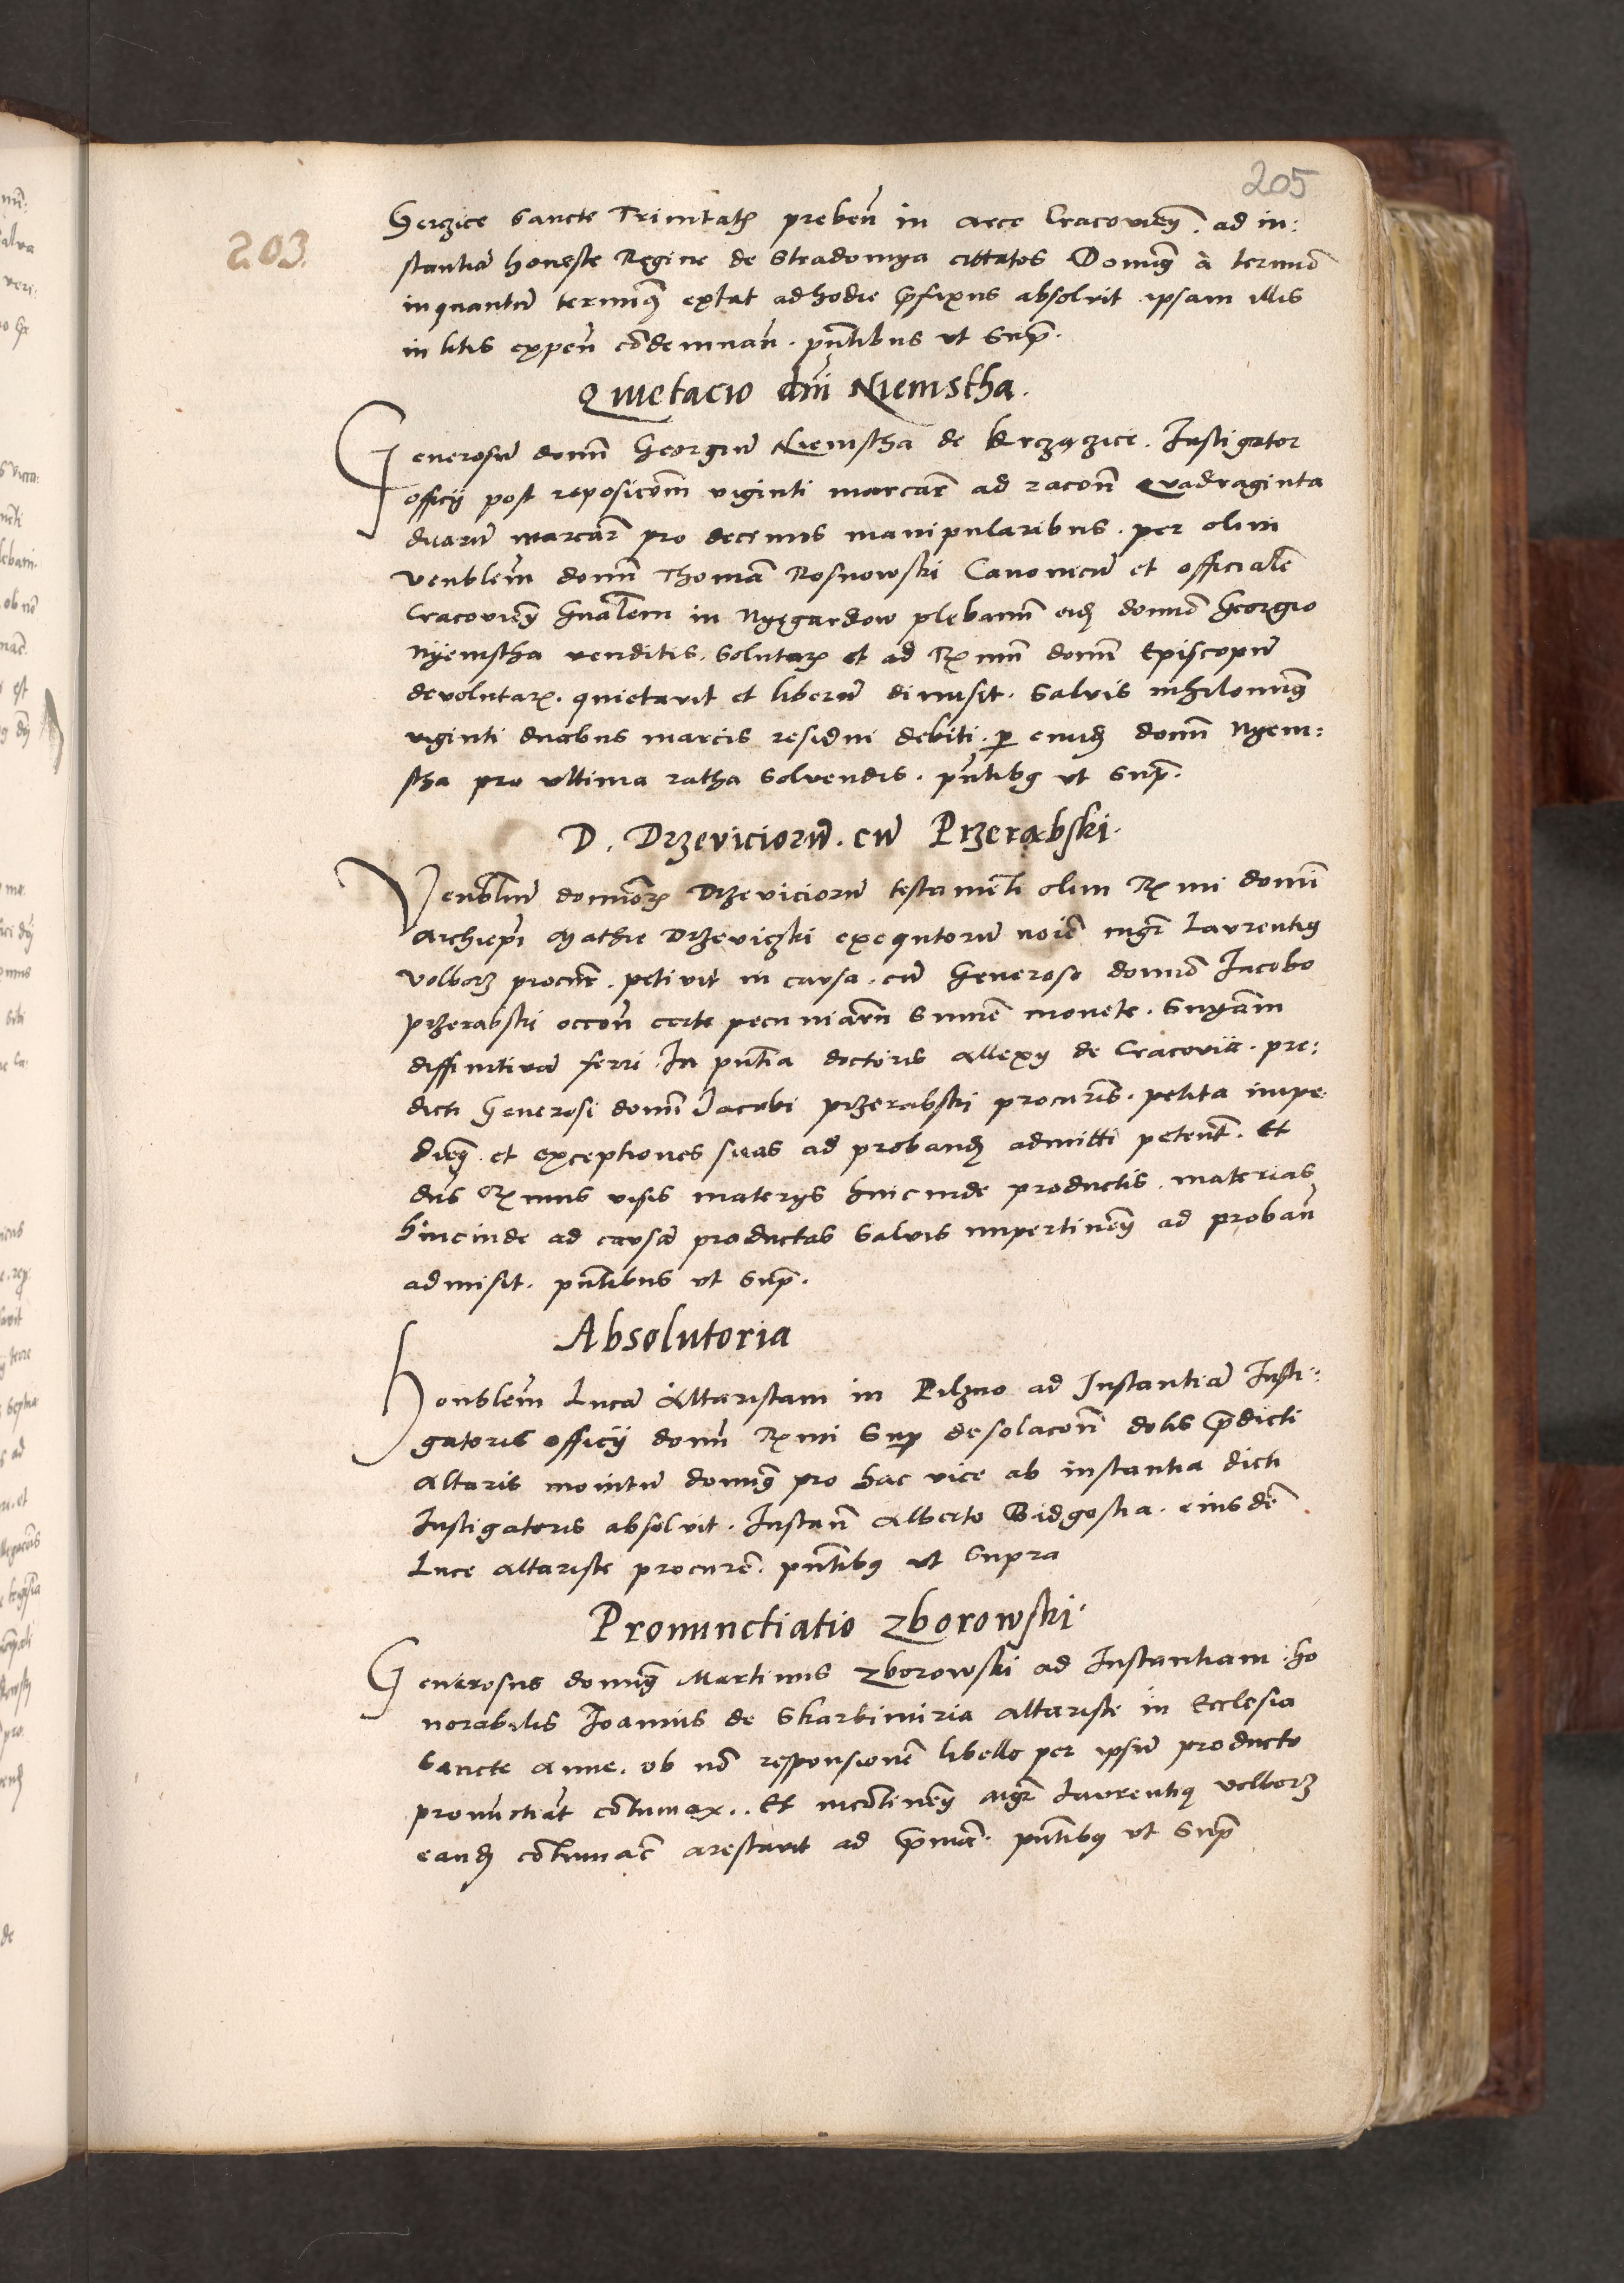 205
203.
Gerzice Sancte Trinitatꝫ prebeñ in Arce Cracovieñ. ad in:
stantiã honeste Regine de Stradomya cittatos Domin9 à termiõ
inquantũ termin9 extat ad hodie p̄fixus absolvit ipsam illis
in litis expeñ cõdemnañ. pñtibus ut Sup̃.
Quietacio dñi Niemstha.
Generosũ domiñ Georgiũ Niemstha de Krczyęzice. Instigator
officij post reposicõem viginti marcarꝫ ad racoñ Quadraginta
duarũ marcarꝫ pro decimis manipularibus. per olim
Venblẽm domiñ Thomã Rosnowski Canonicũ et officialẽ
Cracovieñ gñalem in Nyęgardow plebanũ eidꝫ domiõ Georgio
Nyemstha venditis. Solutarꝫ et ad Rxmũ domiñ Episcopũ
devolutarꝫ. quietavit et liberũ dimisit. Salvis nihilomin9
viginti duabus marcis residui debiti. ꝑ eundꝫ domiñ Nyem:
stha pro ultima ratha solvendis. pñtib9 ut Sup̃.
D. Drzeviciorũ. cũ Przerabski.
Venbliũ dominorꝫ Drzeviciorũ testamẽti olim Rxmi domĩ
Archiepĩ Mathie Drzeviczki exequtorũ noĩe mgr̃ Laurenti9
Volborz procur̃. petivit in causa. cũ Generoso domiõ Iacobo
przerabski occoñ certe pecuniarũ Sum̃e monete. Snyãm
diffinitivã ferri. In pñtia doctoris Allexy de Cracovia. pre:
dicti Generosi domĩ Iacobi przerabski procur̃is. petita impe:
dieñ. et exceptiones suas ad probandꝫ admitti peteñt. Et
dñs Rxmus visis materys hincinde productis. materias
hincinde ad causã productas Salvis impertineñ ad probañ
admisit. pñtibus ut Sup̃.
Absolutoria
Honblẽm Lucã Altaristam in Pilzno ad Instantiã Insti:
gatoris officij domĩ Rxmi Sup desolacoñ dotis p̄dicti
Altaris monitũ domin9 pro hac vice ab instantia dicti
Instigatoris absolvit. Instañ Alberto Bidgostia. eiusdẽ
Luce altariste procurẽ. pñtib9 ut Supra
Pronunctiatio Zborowski.
Generosus domin9 Martinus Zborowski ad Instantiam ho
norabilis Ioannis de Skarbimiria Altariste in Ecclesia
Sancte Anne. ob nõ responsionẽ libello per ipsũ producto
pronũctiat̃ cõtumax. Et incõtineñ mgr̃ Laurenti9 volborz
eandꝫ cõtumaciã arestavit ad p̄miã. pñtib9 ut Sup̃